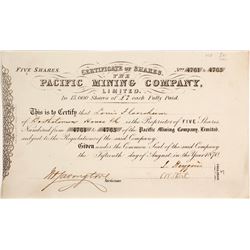 CERTIFICATE OF SHARES.
FIVE SHARES. Nos 4761 to 4765
THE
PACIFIC MINING COMPANY,
LIMITED.
In 15,000 Shares of £7 each Fully Paid.
This is to Certify that Louis Floersheim
of Bartholomew House is the Proprietor of FIVE Shares
Numbered from 4761 to 4765 of the Pacific Mining Company, Limited,
subject to the Regulations of the said Company.
Given under the Common Seal of the said Company
the Fifteenth day of August, in the Year 1870